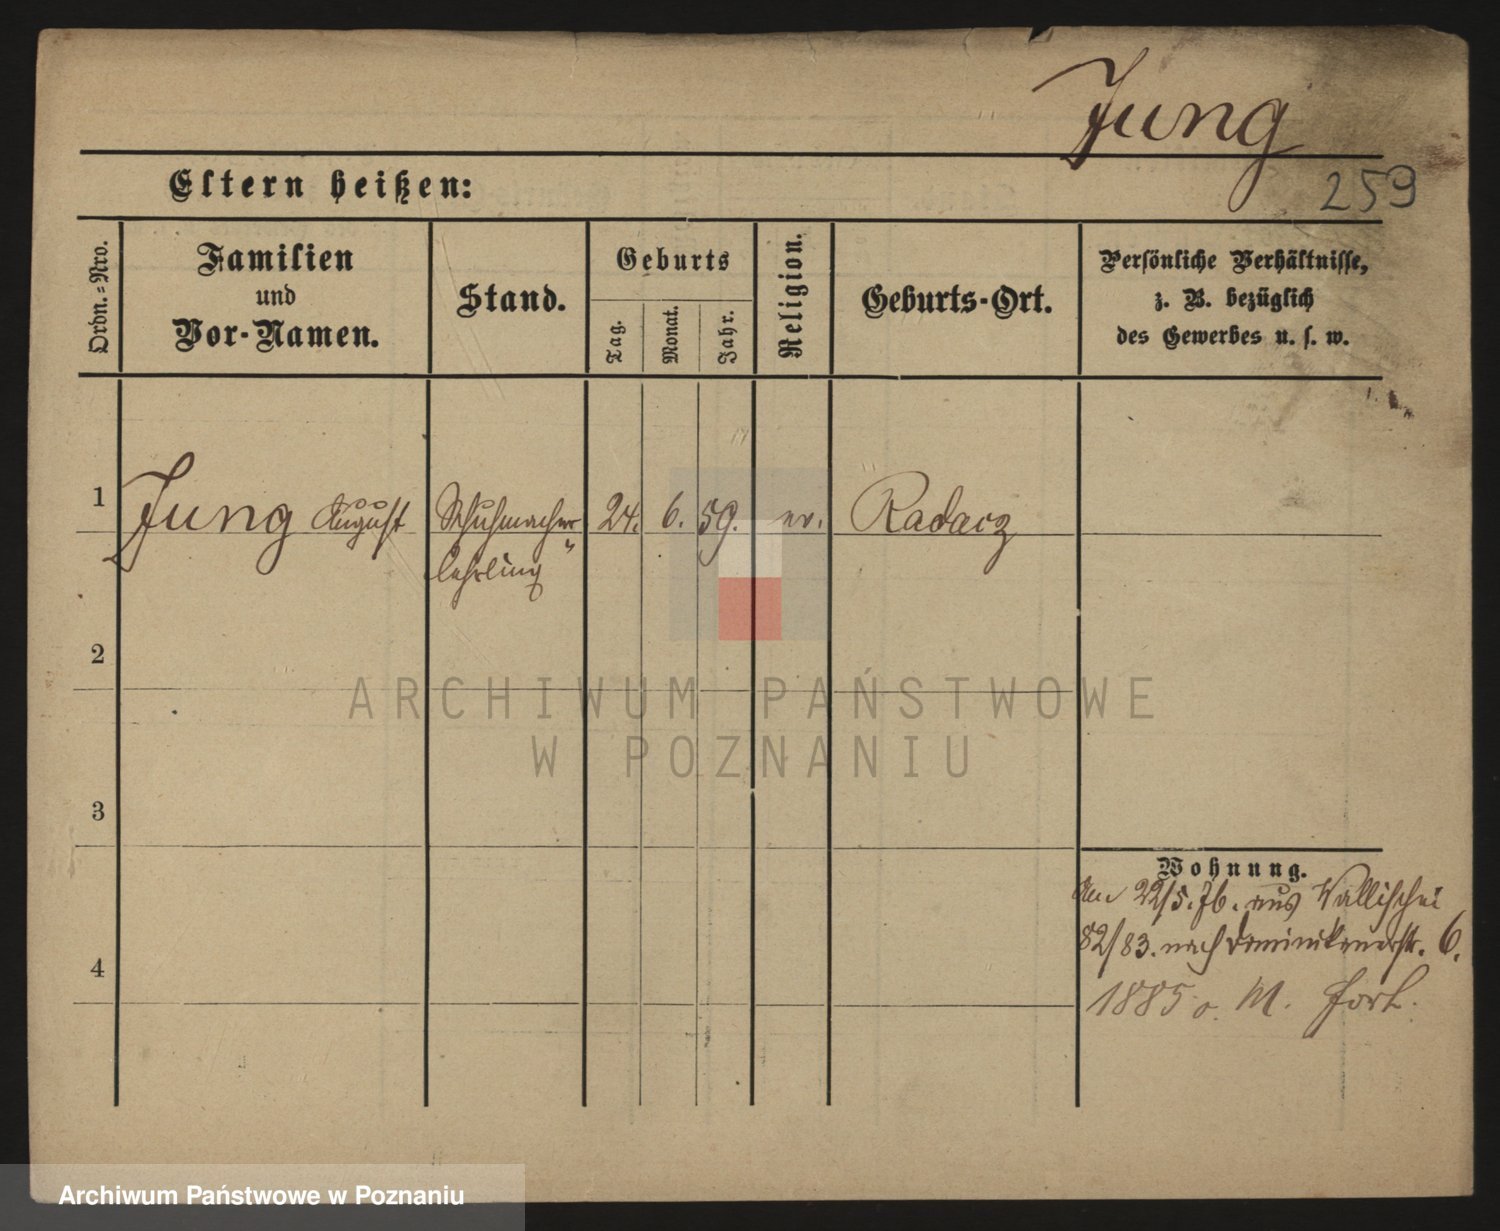 Jung
Eltern heißen:
259
Ordn.-Nro.
Familien
und
Vor-Namen.
Stand.
Geburts
Tag.
Monat.
Jahr.
Religion.
Geburts-Ort.
Persönliche Verhältnisse,
z. B. bezüglich
des Gewerbes u. s. w.
1 Jung August Schuhmacher 24. 6. 59. ev. Radacz
lehrling
2
3
4
Wohnung.
Am 22/5. 76. aus Wallischei
82/83. nach Dominikanerstr. 6.
1885 o. M. fort.
ARCHIWUM PAŃSTWOWE
W POZNANIU
Archiwum Państwowe w Poznaniu